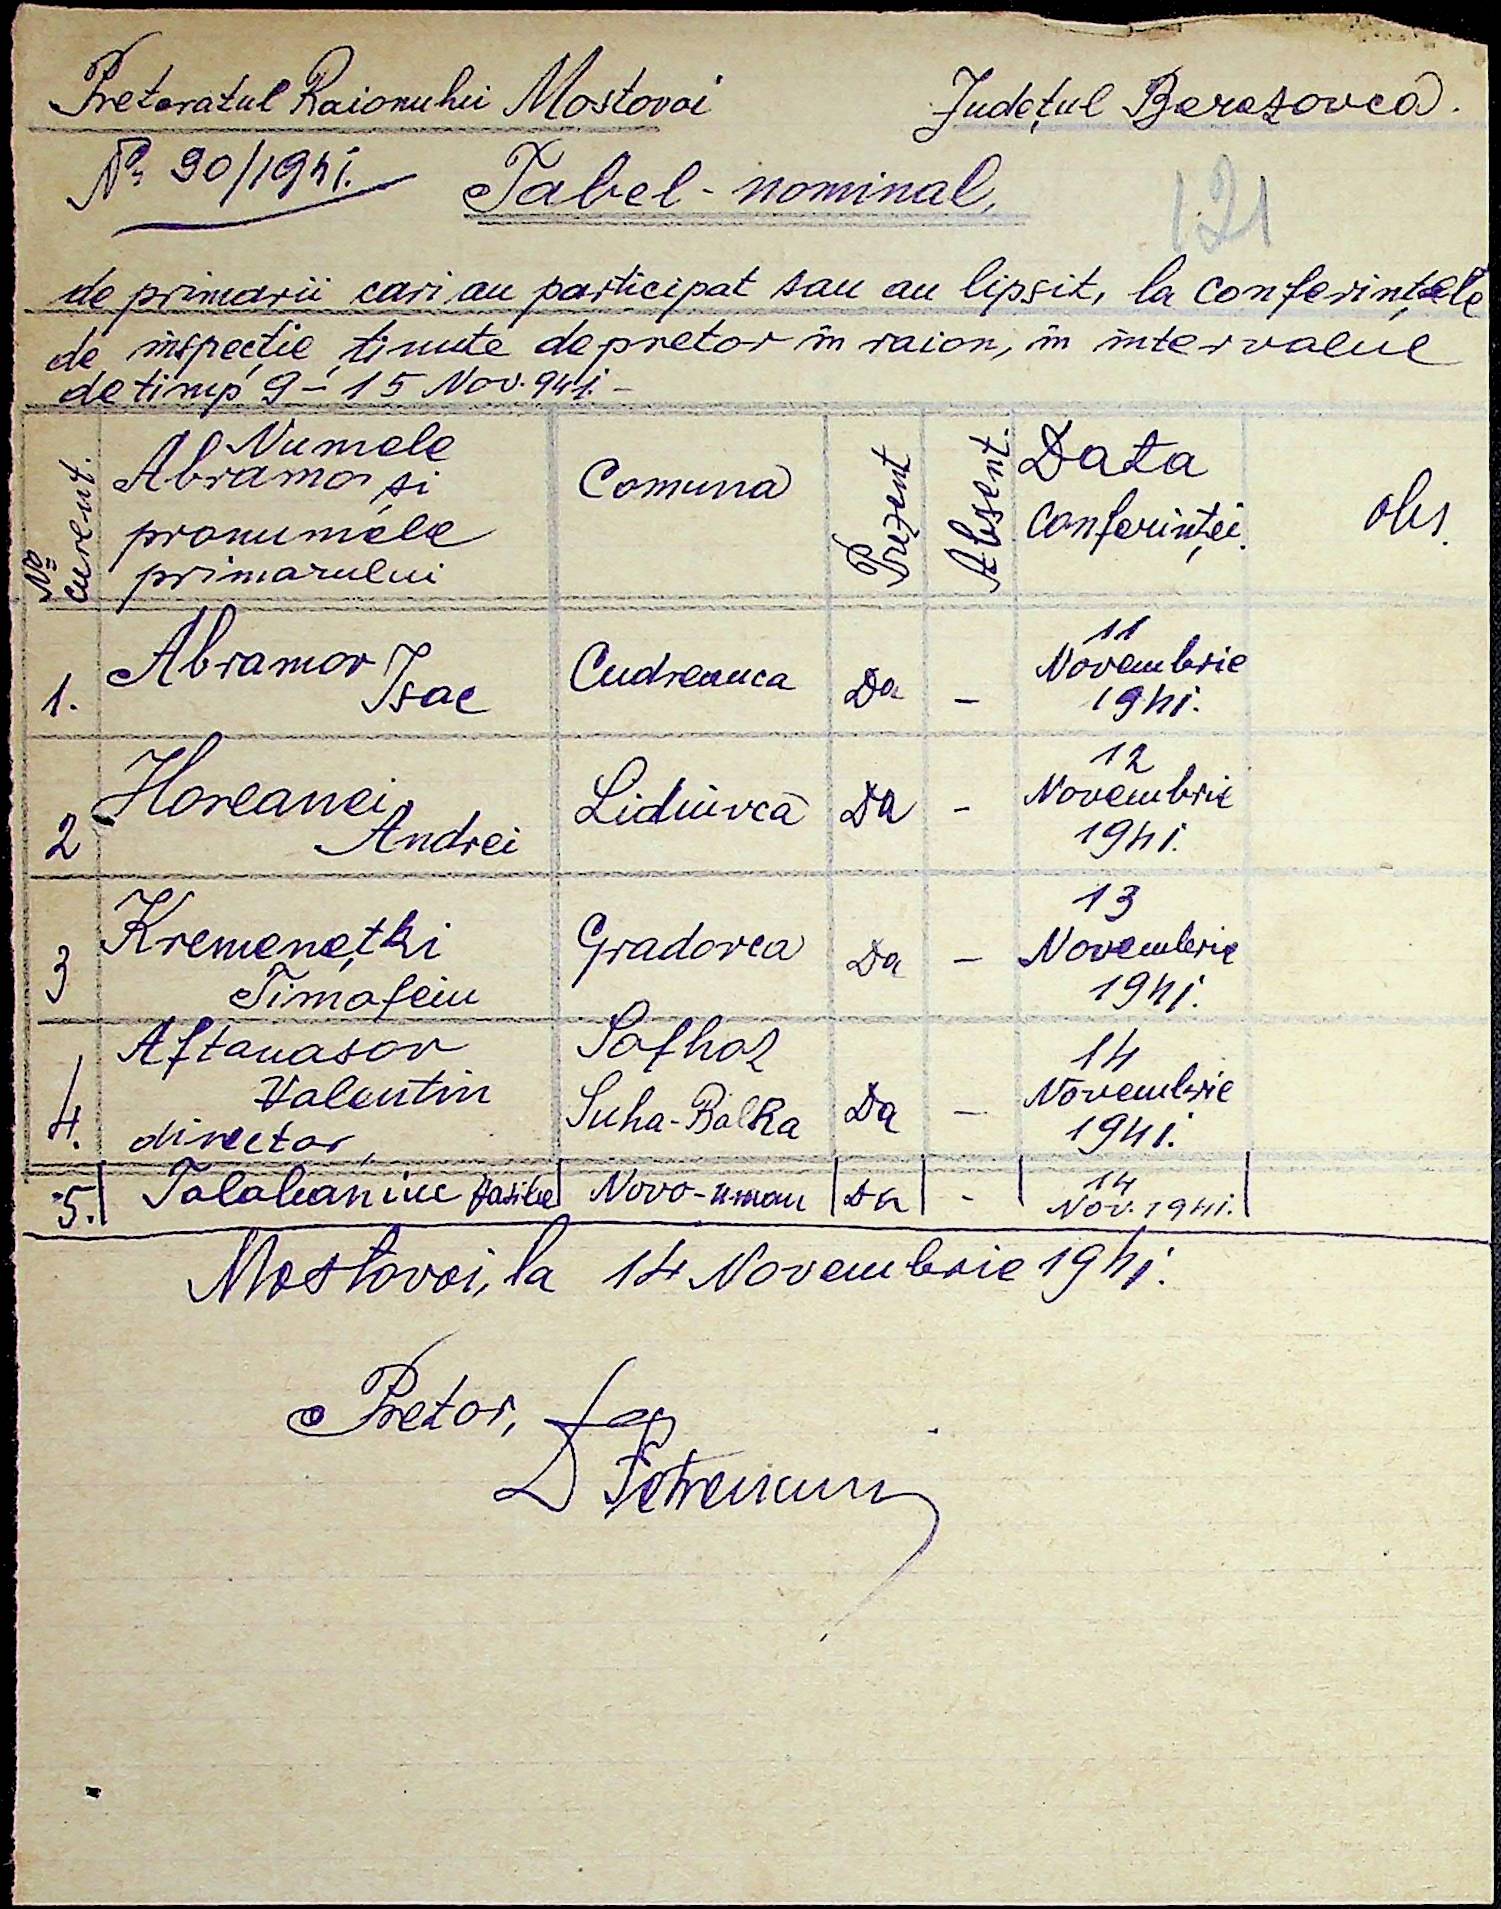 Pretoratul Raionului Mostovoi Județul Berezovca.
№ 90/1941.
Tabel-nominal,
121
de primarii cari au participat sau au lipsit, la conferințele
de inspecție, ținute de pretor în raion, în intervalul
de timp 9-15 Nov. 941.-
№ curent. Numele Abramo și pronumele primarului Comuna Prezent Absent. Data Conferinței. obs.
1. Abramov Isac Cudreauca Da - 11 Novembrie 1941.
2 Horeanei Andrei Lidiuvca Da - 12 Novembrie 1941.
3 Kremenețki Timofeiu Gradovca Da - 13 Novembrie 1941.
4. Aftanasov Valentin director, Sofhoz Suha-Balka Da - 14 Novembrie 1941.
5. Vasile Novo-uman Da - 14 Nov. 1941.
Mostovoi, la 14 Novembrie 1941.
Pretor,